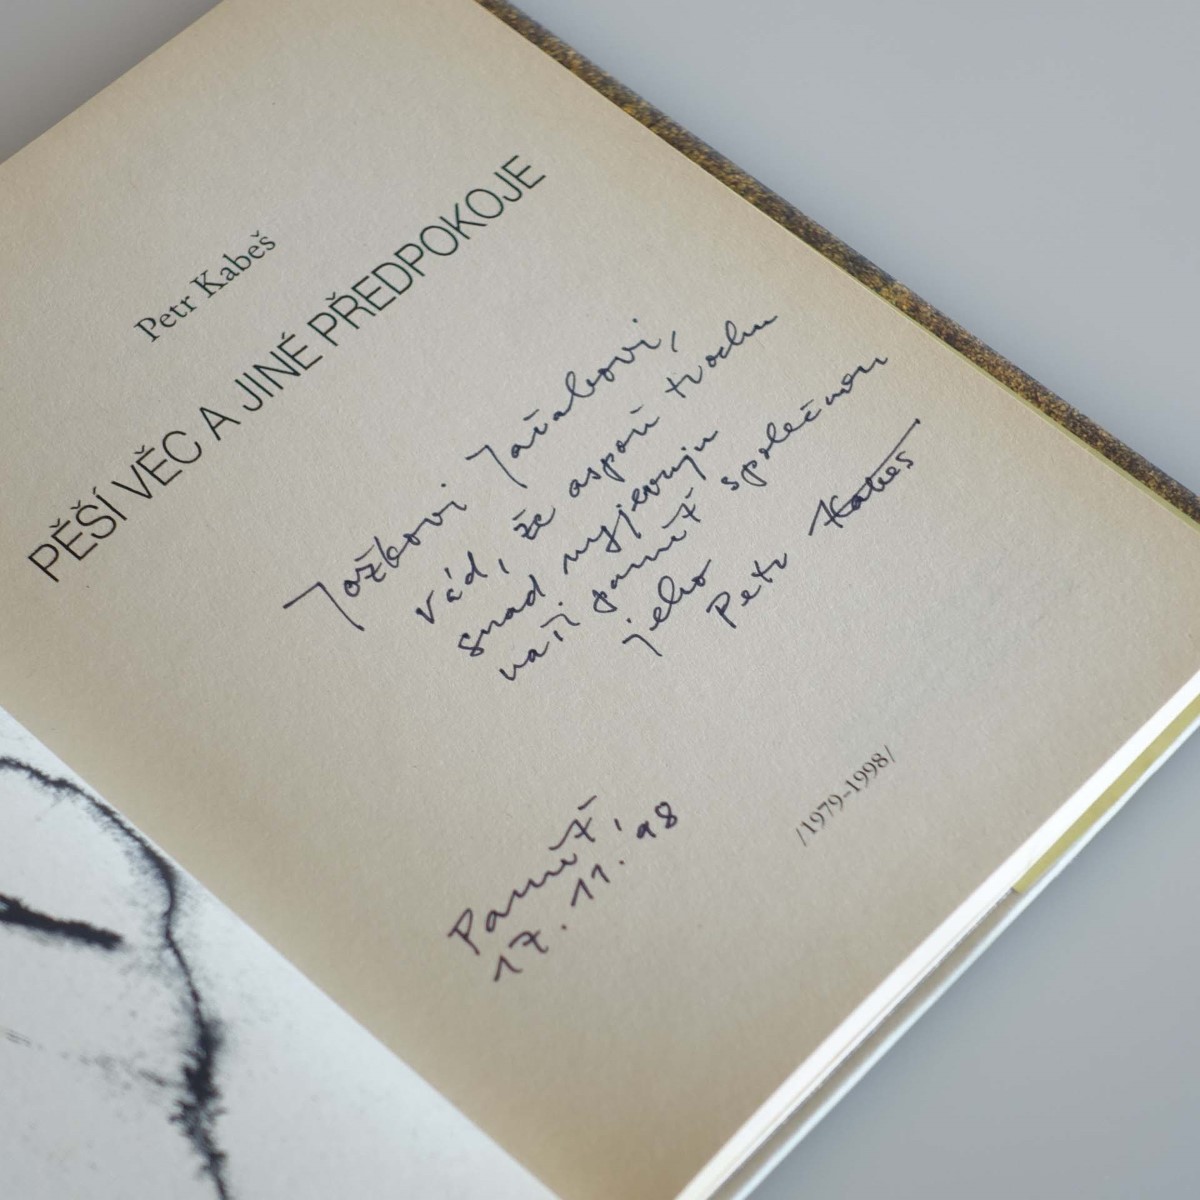 Petr Kabeš
PĚŠÍ VĚC A JINÉ PŘEDPOKOJE
Jožkovi Jařabovi,
rád, že aspoň trochu
snad vyjevuju
naši paměť společnou
jeho
Petr Kabeš
/1979–1998/
Paměť,
17. 11. 98